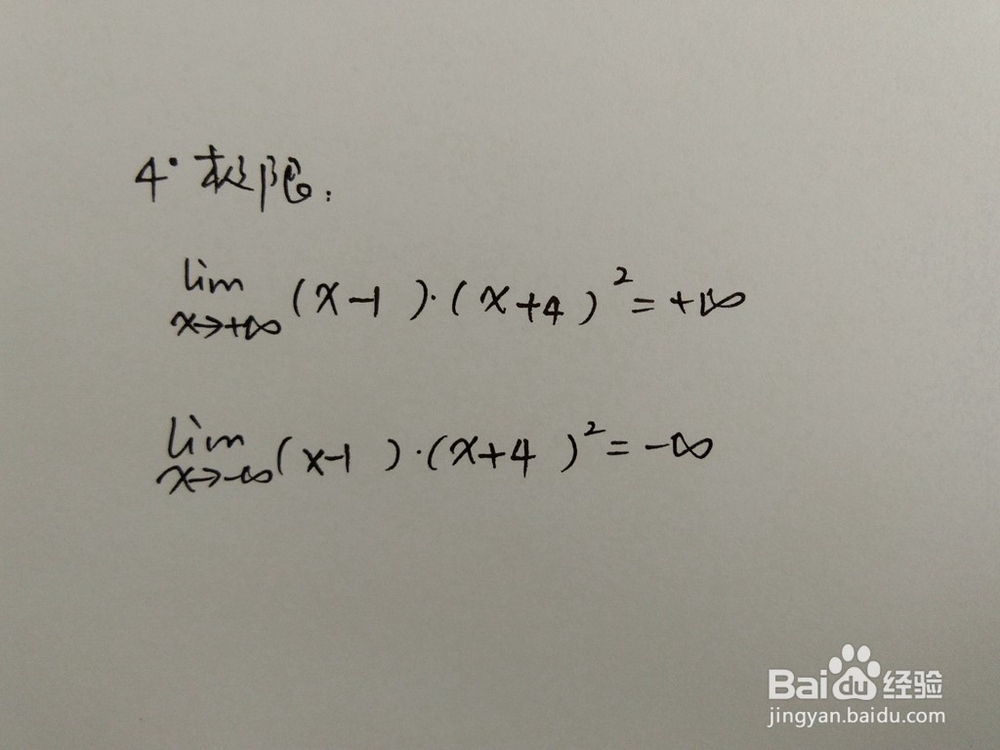 4° 极限:
lim x→+∞ (x-1)·(x+4)² = +∞
lim x→-∞ (x-1)·(x+4)² = -∞
Baidu经验
jingyan.baidu.com